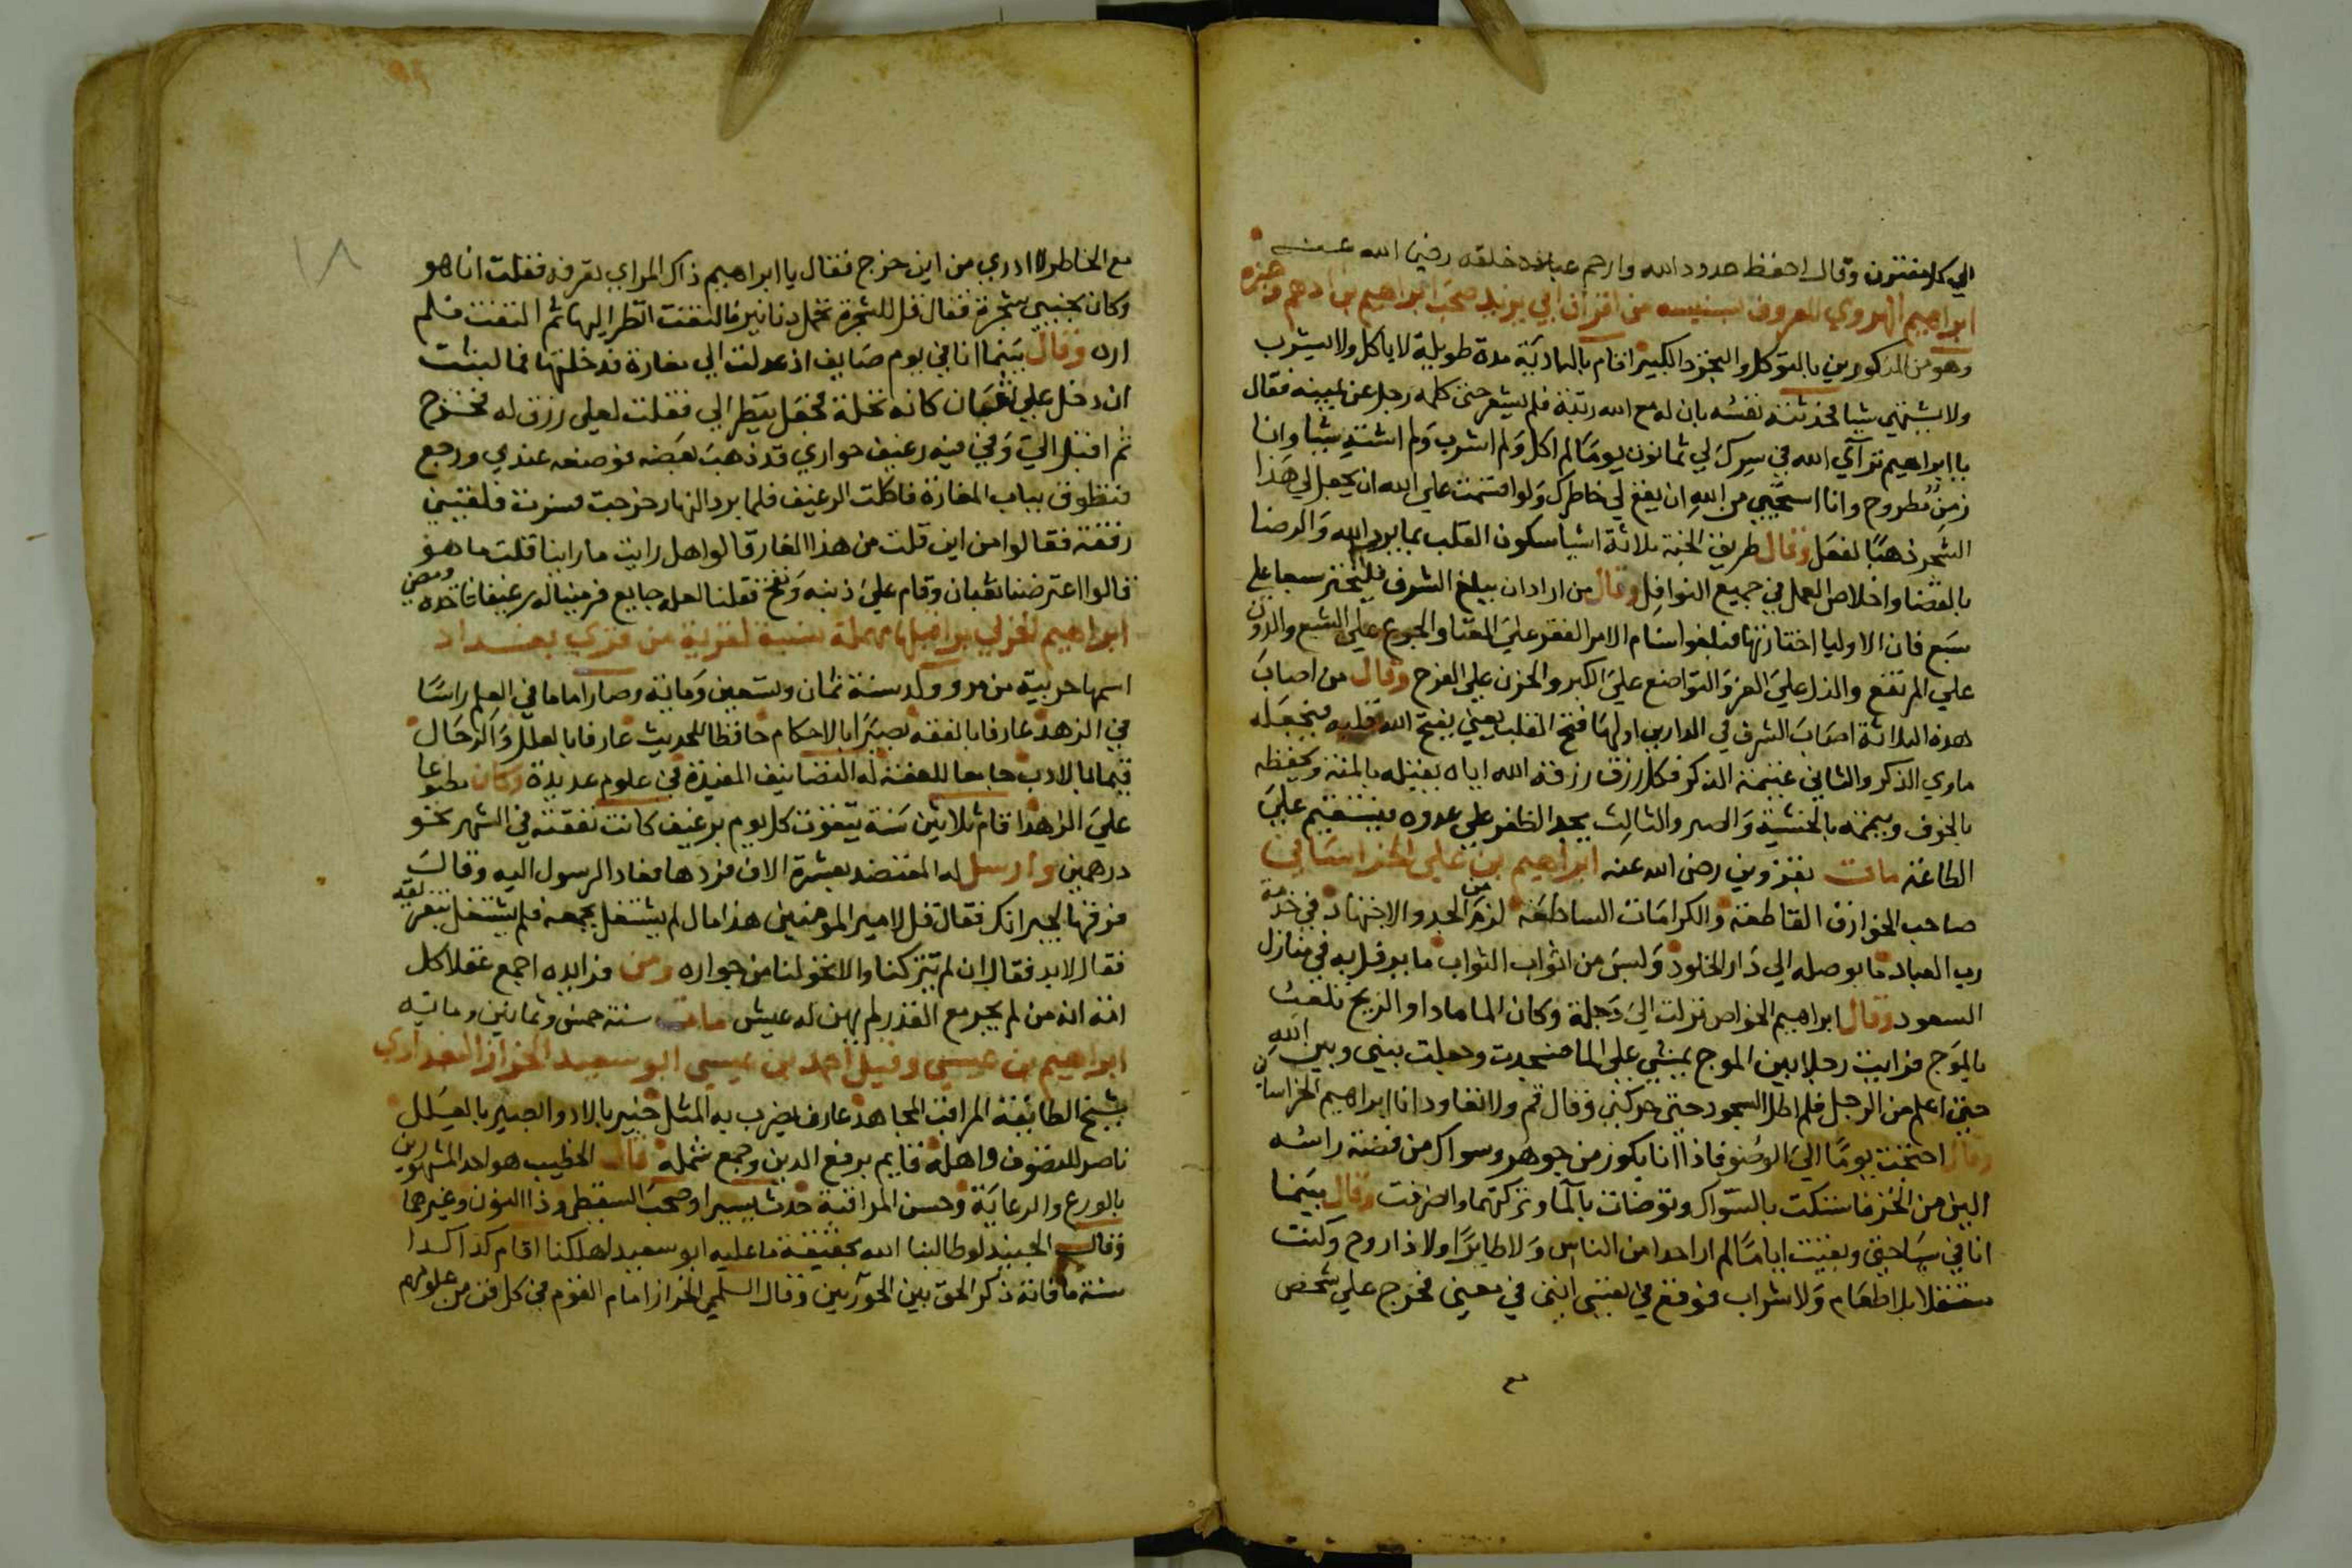 الي كل مفتون وقال احفظ حدود الله وارحم عباده خلقه رضي الله عنه
ابراهيم الهروي المعروف بستيسه من اقران ابي يزيد صحب ابراهيم بن ادهم وغيره
وهو من المذكورين بالتوكل والتجرد الكبير اقام بالبادية مدة طويلة لا ياكل ولا يشرب
ولا يشتهي شيا فحدثته نفسه بان له مع الله رتبة فلم يشعر حتى كلمه رجل عن يمينه فقال
يا ابراهيم ترآي الله في سرك لي ثمانون يوما لم اكل ولم اشرب ولم اشته شيا وانا
زمن مطروح وانا استحيي من الله ان يقع لي خاطرك ولو اقسمت على الله ان يجعل لي هذا
الشجر ذهبا لفعل وقال طريق الجنة ثلاثة اشيا سكون القلب بما يرد الله والرضا
بالقضا واخلاص العمل في جميع النوافل وقال من اراد ان يبلغ الشرف فليختر سبعا على
سبع فان الاوليا اختارتها فبلغوا سنام الامر الفقر على الغنا والجوع على الشبع والدون
على المرتفع والذل على العز والتواضع على الكبر والحزن على الفرح وقال من اصاب
هذه الثلاثة اصاب الشرف في الدارين اولها فتح القلب يعني يفتح الله قلبه فيجعله
ماوي الذكر والثاني غنيمة الذكر فكل رزق رزقه الله اياه يقبله بالمنة ويحفظه
بالخوف ويتمه بالخشية والصبر والثالث يجد الظفر على عدوه فيستقيم على
الطاعة مات بقزوين رضي الله عنه ابراهيم بن علي الخراساني
صاحب الخوارق القاطعة والكرامات الساطعة لزم من الجد والاجتهاد في خدمة
رب العباد ما يوصله الي دار الخلود ولبس من اثواب الثواب ما يرفل به في منازل
السعود وقال ابراهيم الخواص نزلت الي دجلة وكان الما مادا والريح تلعب
بالموج فرايت رجلا بين الموج يمشي على الما فسجدت وجعلت بيني وبين الله
حتى اعلم من الرجل فلم اطل السجود حتى حركني وقال قم ولا تعاود انا ابراهيم الخراساني
وقال احتجت يوما الي الوضو فاذا انا بكوز من جوهر وسواك من فضة راسه
الين من الخز فاستكت بالسواك وتوضات بالما وتركتهما وانصرفت وقال بينما
انا في سياحتي وبقيت اياما لم ار احدا من الناس ولا طايرا ولا ذا روح وكنت
متنقلا بلا طعام ولا شراب فوقع في نفسي انني في معني فخرج علي شخص
مع
١٨
مع الخاطر لا ادري من اين خرج فقال يا ابراهيم ذاك المراي تعرفه فقلت انا هو
وكان بجنبي شجرة فقال قل للشجرة تحمل دنانير فالتفت انظر اليها ثم التفت فلم
اره وقال بينما انا في يوم صايف اذ عدلت الي مغارة فدخلتها فما لبثت
ان دخل علي ثعبان كانه نخلة فجعل ينظر الي فقلت لعلي رزق له فخرج
ثم اقبل الي وفي فيه رغيف حواري قد ذهب بعضه فوضعه عندي ورجع
فتطوق بباب المغارة فاكلت الرغيف فلما برد النهار خرجت فسرت فلقيني
رفقة فقالوا من اين قلت من هذا الغار قالوا هل رايت ما راينا قلت ما هو
قالوا اعترضنا ثعبان وقام على ذنبه ونفخ فقلنا لعله جايع فرمينا له رغيفا فاخذه ومضي
ابراهيم الحربي نسبة لقرية من قري بغداد
اسمها حربية من مرو ولد سنة ثمان وتسعين وماية وصار اماما في العلم راسا
في الزهد عارفا بالفقه بصيرا بالاحكام حافظا للحديث عارفا بالعلل والرجال
قيما بالادب جماعا للغة له التصانيف المفيدة في علوم عديدة وكان مطبوعا
على الزهد اقام ثلاثين سنة يتقوت كل يوم برغيف كانت نفقته في الشهر نحو
درهمين وارسل له المعتضد بعشرة الاف فردها فعاد الرسول اليه وقال
فرقها لجيرانك فقال قل لامير المومنين هذا مال لم يشتغل بجمعه فلم يشتغل بتفريقه
فقال لابد فقال ان لم تتركنا والا تحولنا من جواره ومن فوايده اجمع عقلا كل
امة انه من لم يجر مع القدر لم يهن له عيش مات سنة خمس وثمانين وماتيه
ابراهيم بن عيسي وقيل احمد بن عيسي ابو سعيد الخراز البغدادي
شيخ الطايفة المراقب المجاهد عارف يضرب به المثل خبير بالادوا بصير بالعلل
ناصر للتصوف واهله قايم برفع الدين وجمع شمله قال الخطيب هو احد المشهورين
بالورع والرعاية وحسن المراقبة حدث يسيرا وصحب السقطي وذا النون وغيرهما
وقال الجنيد لو طالبنا الله بحقيقة ما عليه ابو سعيد لهلكنا اقام كذا كذا
سنة ما فاته ذكر الحق بين الخرزتين وقال السلمي الخراز امام القوم في كل فن من علومهم